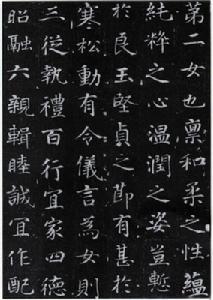 第二女也稟和柔之性蘊
純粹之心溫潤之姿豈慙
於良玉堅貞之節有甚於
寒松動有令儀言為女則
三從執禮百行宜家四德
昭融六親輯睦誠宜作配